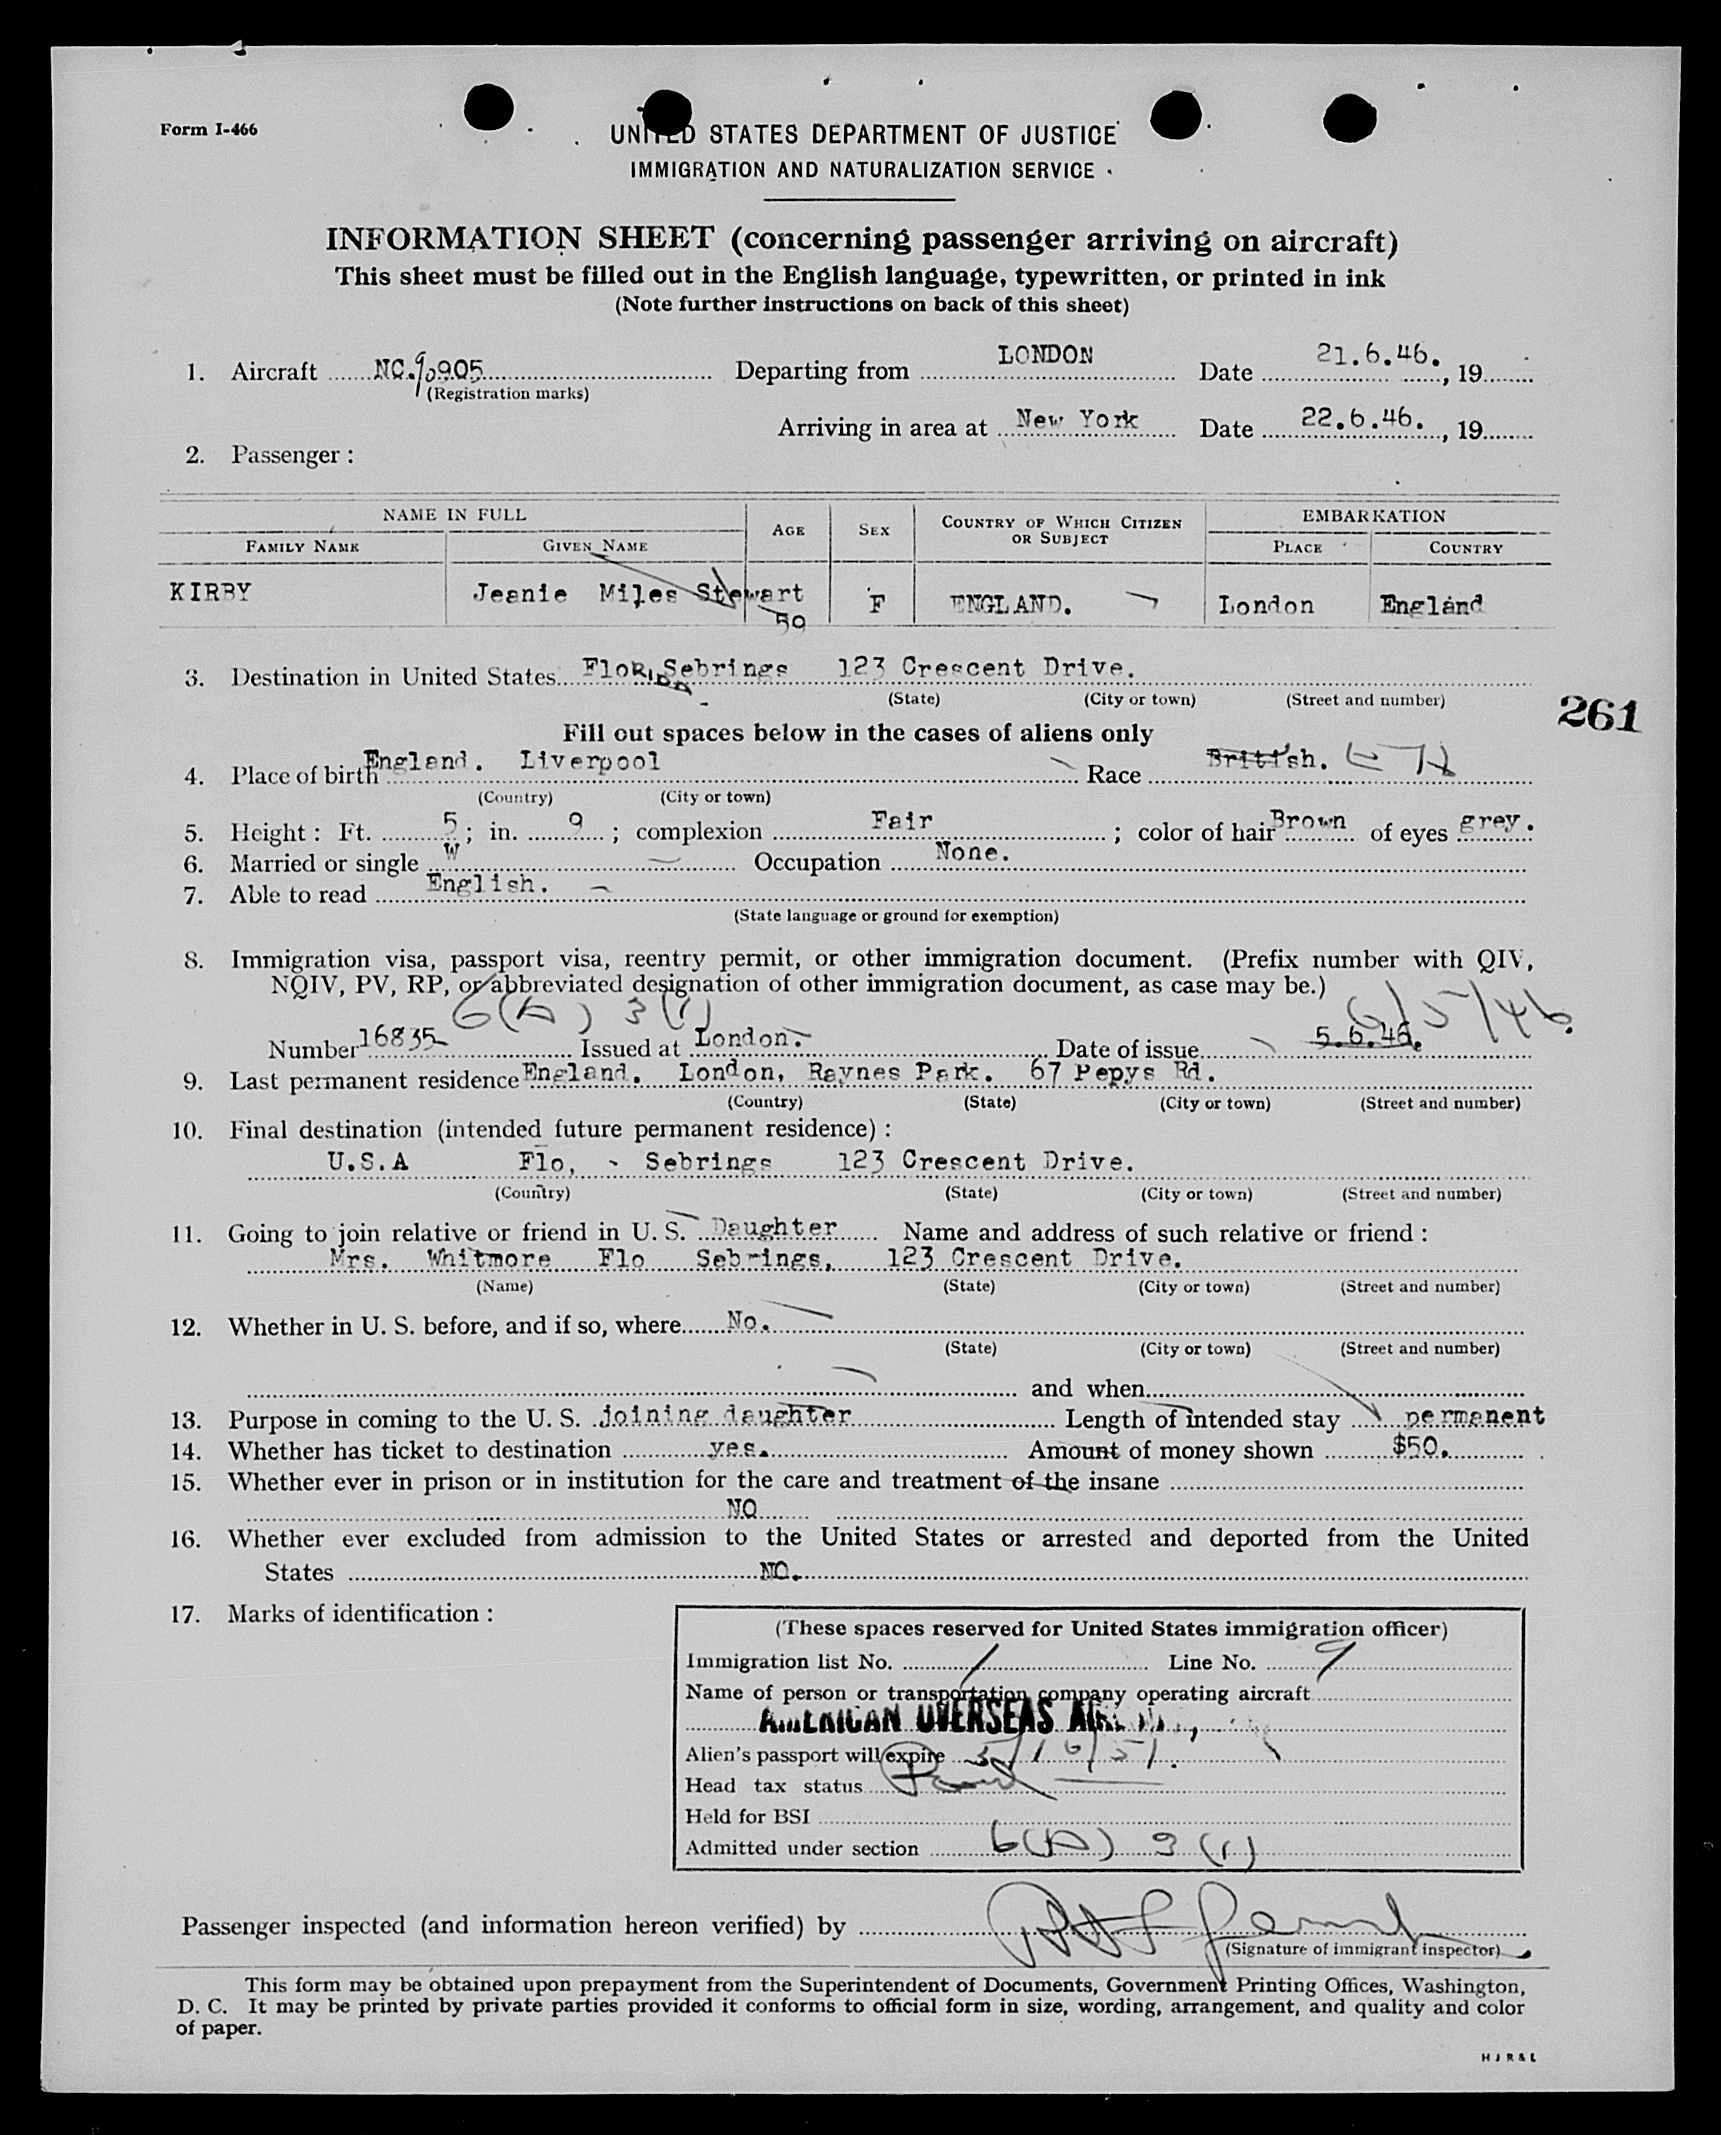 Form I-466
UNITED STATES DEPARTMENT OF JUSTICE
IMMIGRATION AND NATURALIZATION SERVICE
INFORMATION SHEET (concerning passenger arriving on aircraft)
This sheet must be filled out in the English language, typewritten, or printed in ink
(Note further instructions on back of this sheet)
1. Aircraft NC.90905 Departing from LONDON Date 21.6.46. , 19
(Registration marks)
Arriving in area at New York Date 22.6.46. , 19
2. Passenger :
NAME IN FULL AGE SEX COUNTRY OF WHICH CITIZEN OR SUBJECT EMBARKATION
FAMILY NAME GIVEN NAME PLACE COUNTRY
KIRBY Jeanie Miles Stewart 50 F ENGLAND. London England
3. Destination in United States FloRIDA Sebrings 123 Crescent Drive.
(State) (City or town) (Street and number)
261
Fill out spaces below in the cases of aliens only
4. Place of birth England. Liverpool Race British.
(Country) (City or town)
5. Height : Ft. 5 ; in. 9 ; complexion Fair ; color of hair Brown of eyes grey.
6. Married or single W Occupation None.
7. Able to read English.
(State language or ground for exemption)
8. Immigration visa, passport visa, reentry permit, or other immigration document. (Prefix number with QIV,
NQIV, PV, RP, or abbreviated designation of other immigration document, as case may be.)
6(A) 3(1) 6/5/46
Number 16835 Issued at London. Date of issue 5.6.46.
9. Last permanent residence England. London, Raynes Park. 67 Pepys Rd.
(Country) (State) (City or town) (Street and number)
10. Final destination (intended future permanent residence) :
U.S.A Flo, - Sebrings 123 Crescent Drive.
(Country) (State) (City or town) (Street and number)
11. Going to join relative or friend in U. S. Daughter Name and address of such relative or friend :
Mrs. Whitmore Flo Sebrings, 123 Crescent Drive.
(Name) (State) (City or town) (Street and number)
12. Whether in U. S. before, and if so, where No.
(State) (City or town) (Street and number)
and when
13. Purpose in coming to the U. S. joining daughter Length of intended stay permanent
14. Whether has ticket to destination yes. Amount of money shown $50.
15. Whether ever in prison or in institution for the care and treatment of the insane
NO
16. Whether ever excluded from admission to the United States or arrested and deported from the United
States NO.
17. Marks of identification :
(These spaces reserved for United States immigration officer)
Immigration list No. 1 Line No. 9
Name of person or transportation company operating aircraft
AMERICAN OVERSEAS
Alien's passport will expire
Head tax status Paid
Held for BSI
Admitted under section 6(A) 3 (1)
Passenger inspected (and information hereon verified) by
(Signature of immigrant inspector)
This form may be obtained upon prepayment from the Superintendent of Documents, Government Printing Offices, Washington,
D. C. It may be printed by private parties provided it conforms to official form in size, wording, arrangement, and quality and color
of paper.
H J R & L